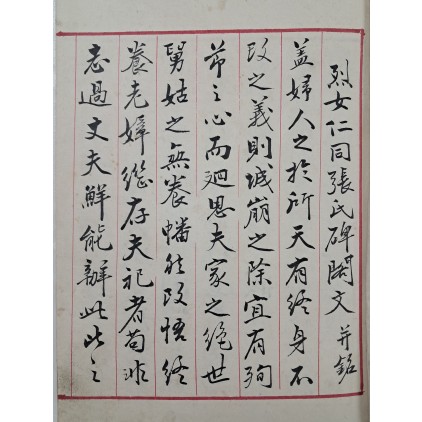 烈女仁同張氏碑閣文 并銘
盖婦人之於所天有終身不
改之義則城崩之除宜有殉
節之心而廽思夫家之絶世
舅姑之無養幡然改悟終
養老嫜繼存夫祀者苟非
志過丈夫鮮能辦此此之